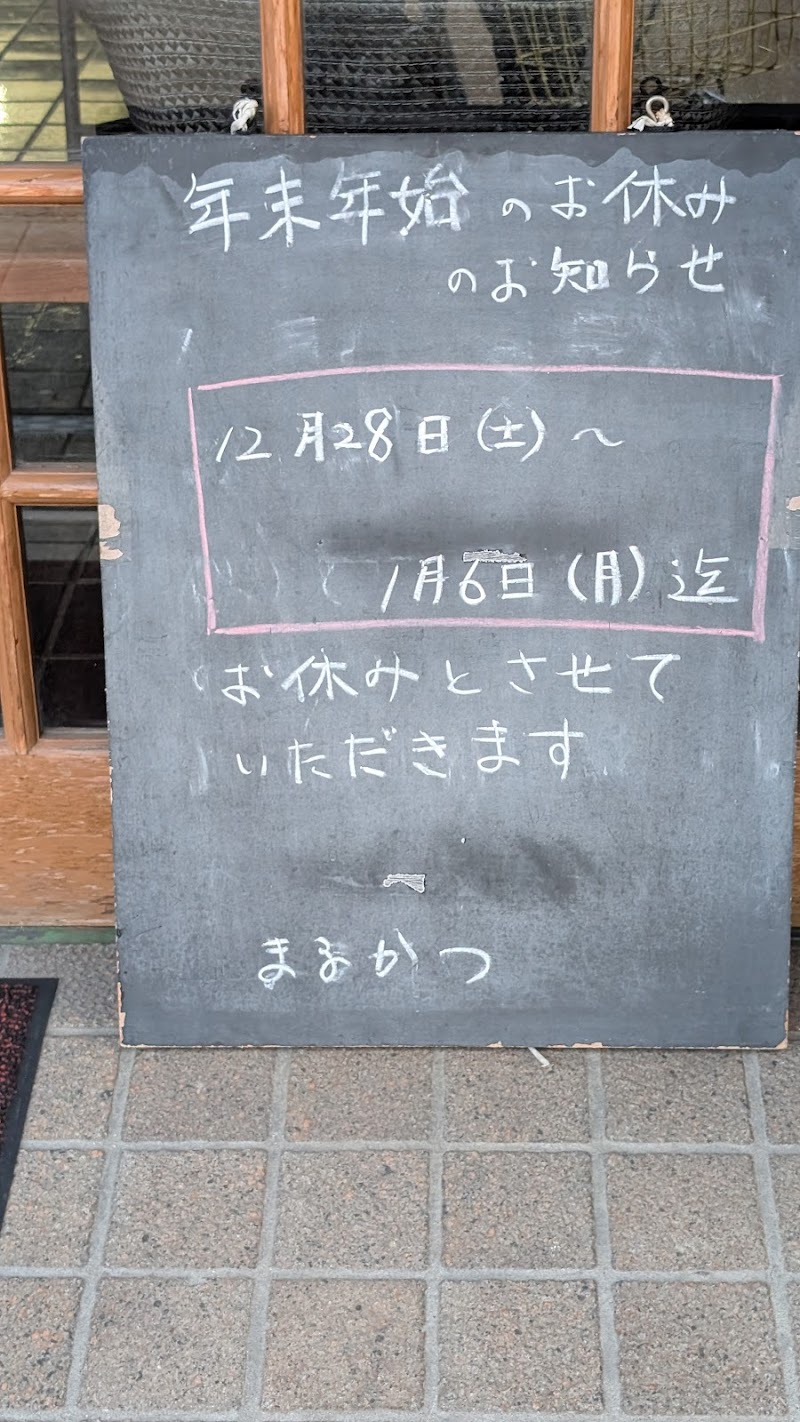 年末年始のお休み
のお知らせ
12月28日(土)〜
1月6日(月)迄
お休みとさせて
いただきます
まるかつ